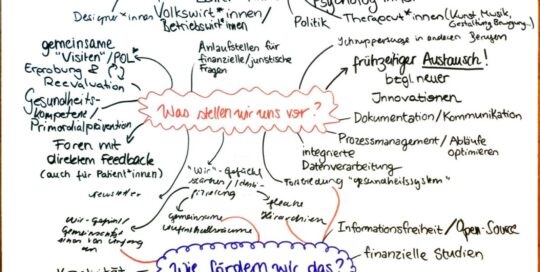 Designer*innen
Volkswirt*innen/
Betriebswirt*innen
Politik
Therapeut*innen (Kunst, Musik,
Gestaltung, Bewegung)
gemeinsame
"Visiten"/POL
Erprobung &
Reevaluation
Gesundheits-
kompetenz/
Primordialprävention
Foren mit
direktem Feedback
(auch für Patient*innen)
Newsletter
Anlaufstellen für
finanzielle/juristische
Fragen
Schnuppertage in anderen Berufen
frühzeitiger Austausch!
bzgl. neuer
Innovationen
Dokumentation/Kommunikation
Prozessmanagement/Abläufe
optimieren
integrierte
Datenverarbeitung
Fortbildung "Gesundheitssystem"
Was stellen wir uns vor?
"Wir"-Gefühl
stärken/Identi-
fizierung
flache
Hierarchien
gemeinsame
Aufenthaltsräume
Wir-Gefühl/
Gemeinschafts
Informationsfreiheit/Open-Source
finanzielle Studien
Wie fördern wir das?